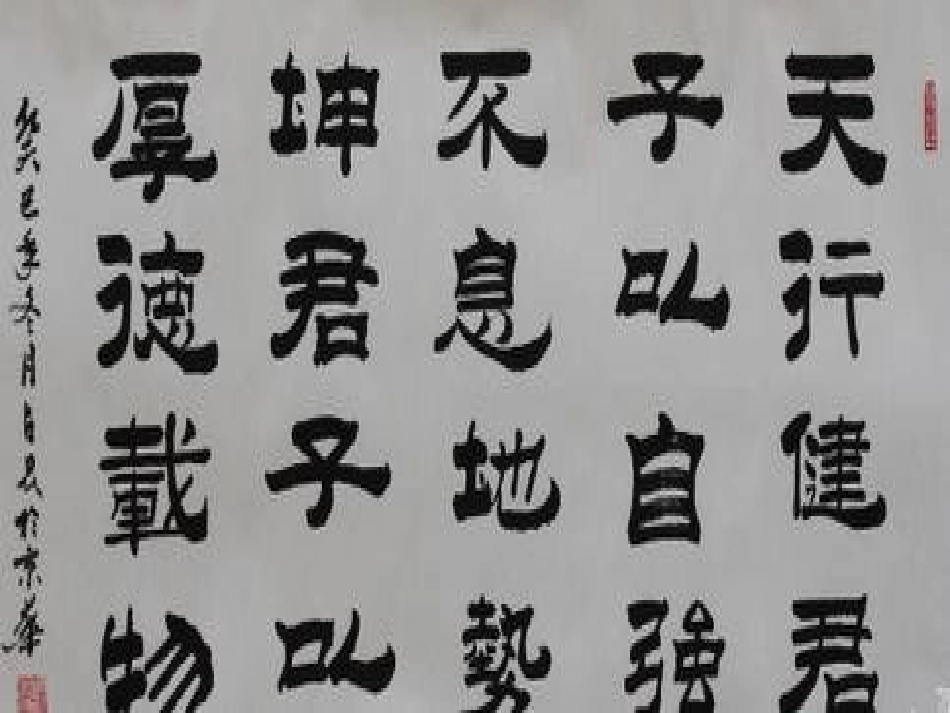 天行健君
子以自強
不息地勢
坤君子以
厚德載物
癸巳年冬月自民於京華